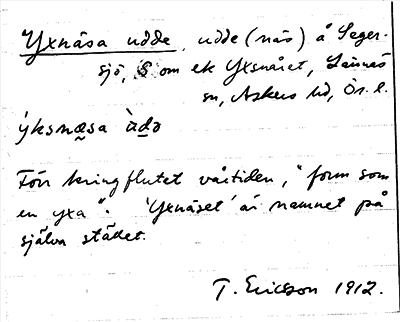 Yxnäsa udde, udde (näs) å Seger-
sjö, S om ek Yxsnäset, Lännäs
sn, Askers hd, Ör. l.
ýksnæsa ùdə
Förr kringflutet vårtiden, "form som
en yxa". 'Yxnäset' är namnet på
själva stället.
T. Ericsson 1912.